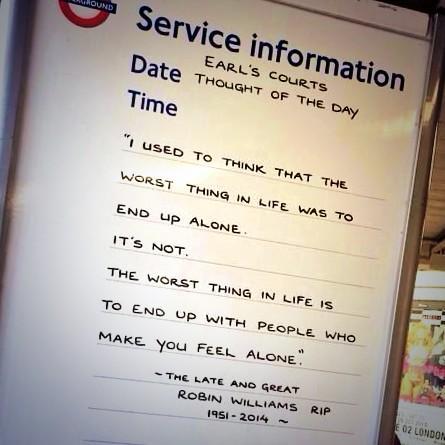 ERGROUND
Service information
Date EARL'S COURTS
THOUGHT OF THE DAY
Time
"I USED TO THINK THAT THE
WORST THING IN LIFE WAS TO
END UP ALONE.
IT'S NOT.
THE WORST THING IN LIFE IS
TO END UP WITH PEOPLE WHO
MAKE YOU FEEL ALONE."
~ THE LATE AND GREAT
ROBIN WILLIAMS RIP
1951-2014 ~
E O2 LONDON